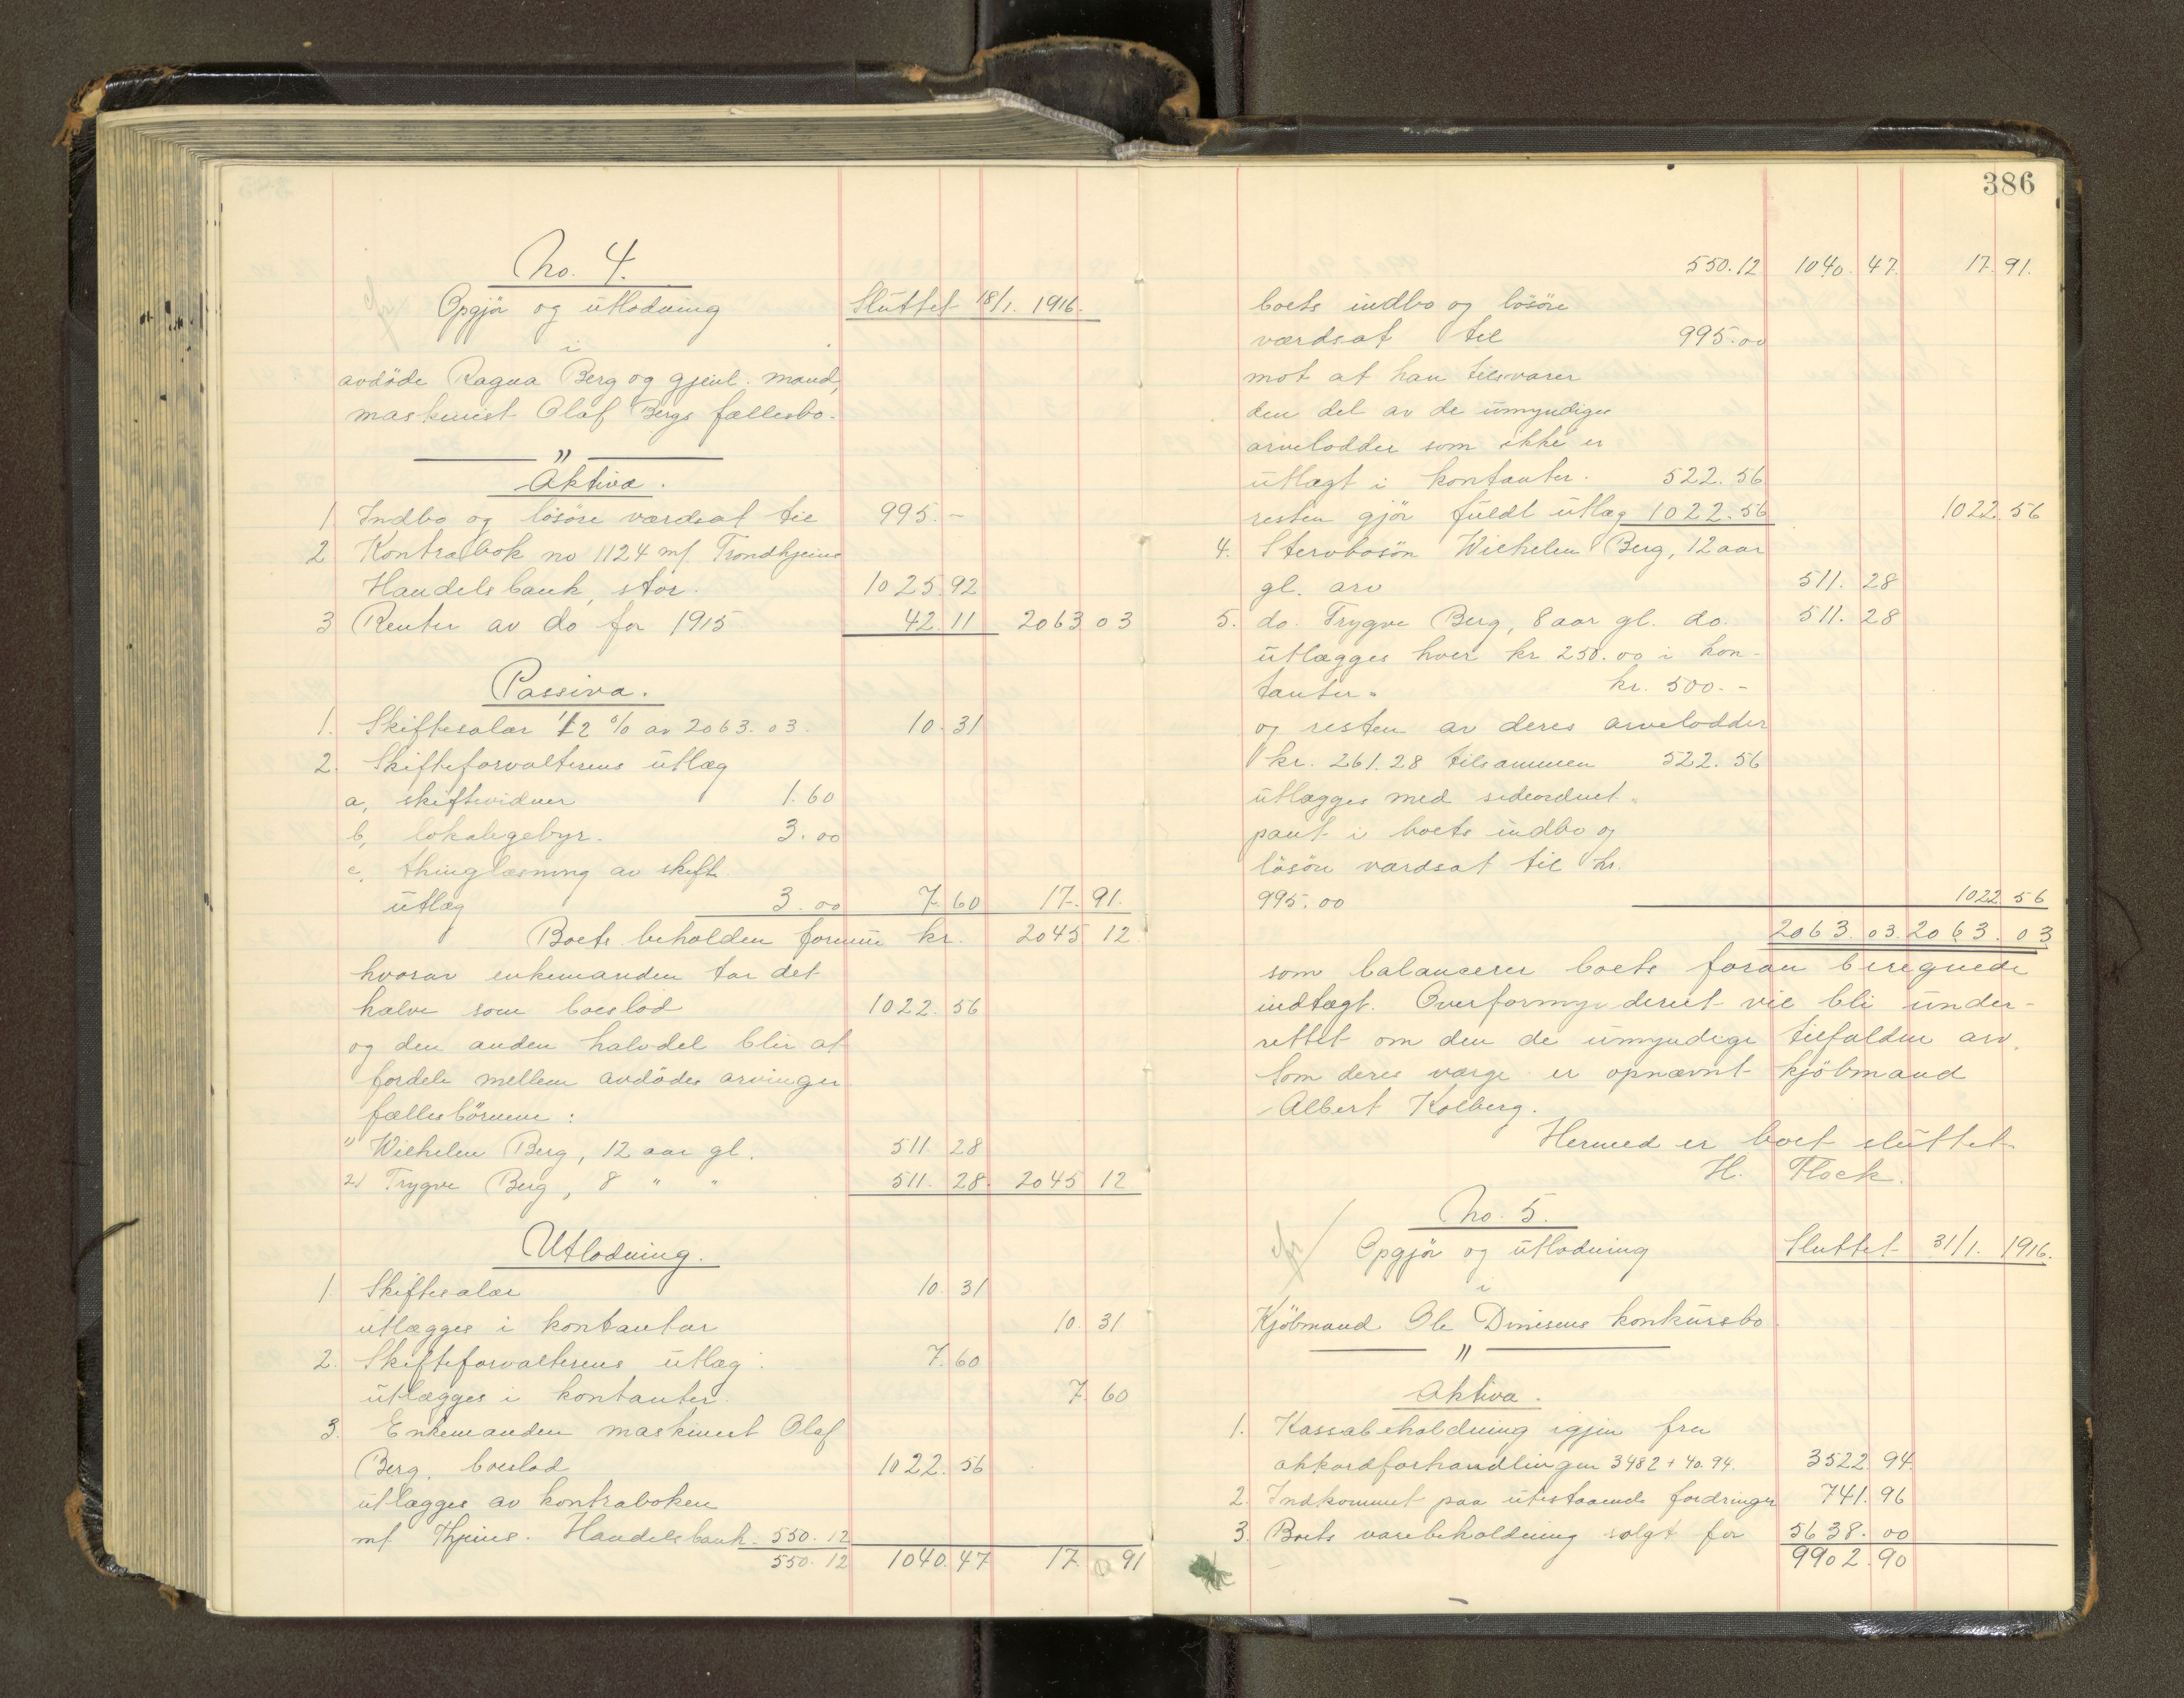 No. 4.
Opgjör og utlodning
Sluttet 18/1. 1916.
i
avdöde Ragna Berg og gjenl. mand,
maskinist Olaf Bergs fællesbo.
"
Aktiva.
1 Indbo og lösöre værdsat til 995.-
2 Kontrabok no 1124 mf. Trondhjems
Handelsbank, stor. 1025.92
3 Renter av do for 1915 42.11 2063 03
Passiva.
1. Skiftesalær 1/2 % av 2063.03. 10.31
2. Skifteforvalterens utlæg
a, skiftevidner 1.60
b, lokalegebyr. 3.00
c, thinglæsning av skift.
utlæg 3.00 7.60 17.91.
Boets beholdne formue kr. 2045 12
hvorav enkemanden tar det
halve som boeslod 1022.56
og den anden halvdel blir at
fordele mellem avdödes arvinger
fællesbörnene:
1) Wilhelm Berg, 12 aar gl. 511.28
2) Trygve Berg, 8 " " 511.28. 2045 12
Utlodning.
1. Skiftesalær 10.31
utlægges i kontanter 10.31
2. Skifteforvalterens utlæg. 7.60
utlægges i kontanter. 7.60
3. Enkemanden maskinist Olaf
Berg, boeslod 1022.56
utlægges av kontraboken
mf Thjems. Handelsbank 550.12
550.12 1040.47 17 91
386
550.12 1040.47. 17.91.
boets indbo og lösöre
værdsat til 995.00
mot at han tilsvarer
den del av de umyndiges
arvelodder som ikke er
utlagt i kontanter. 522.56
resten gjör fuldt utlæg 1022.56 1022.56
4. Stervbosön Wilhelm Berg, 12 aar
gl. arv 511.28
5. do. Trygve Berg, 8 aar gl. do. 511.28
utlægges hver kr 250.00 i kon-
tanter. kr. 500.-
og resten av deres arvelodder
kr. 261.28 tilsammen 522.56
utlægges med sideordnet
pant i boets indbo og
lösöre værdsat til kr.
995.00 1022 56
2063.03. 2063.03
som balancerer boets foran beregnede
indtægt. Overformynderiet vil bli under-
rettet om den de umyndige tilfaldne arv.
Som deres værge er opnævnt kjöbmand
Albert Kolberg.
Hermed er boet sluttet
H. Flock.
No. 5.
Opgjör og utlodning
Sluttet 31/1. 1916.
i
Kjöbmand Ole Dinesens konkursbo
"
Aktiva.
1. Kassabeholdning igjen fra
akkordforhandlingen 3482 + 40.94. 3522.94.
2. Indkommet paa utestaaende fordringer 741.96
3. Boets varebeholdning solgt for 5638.00
9902.90